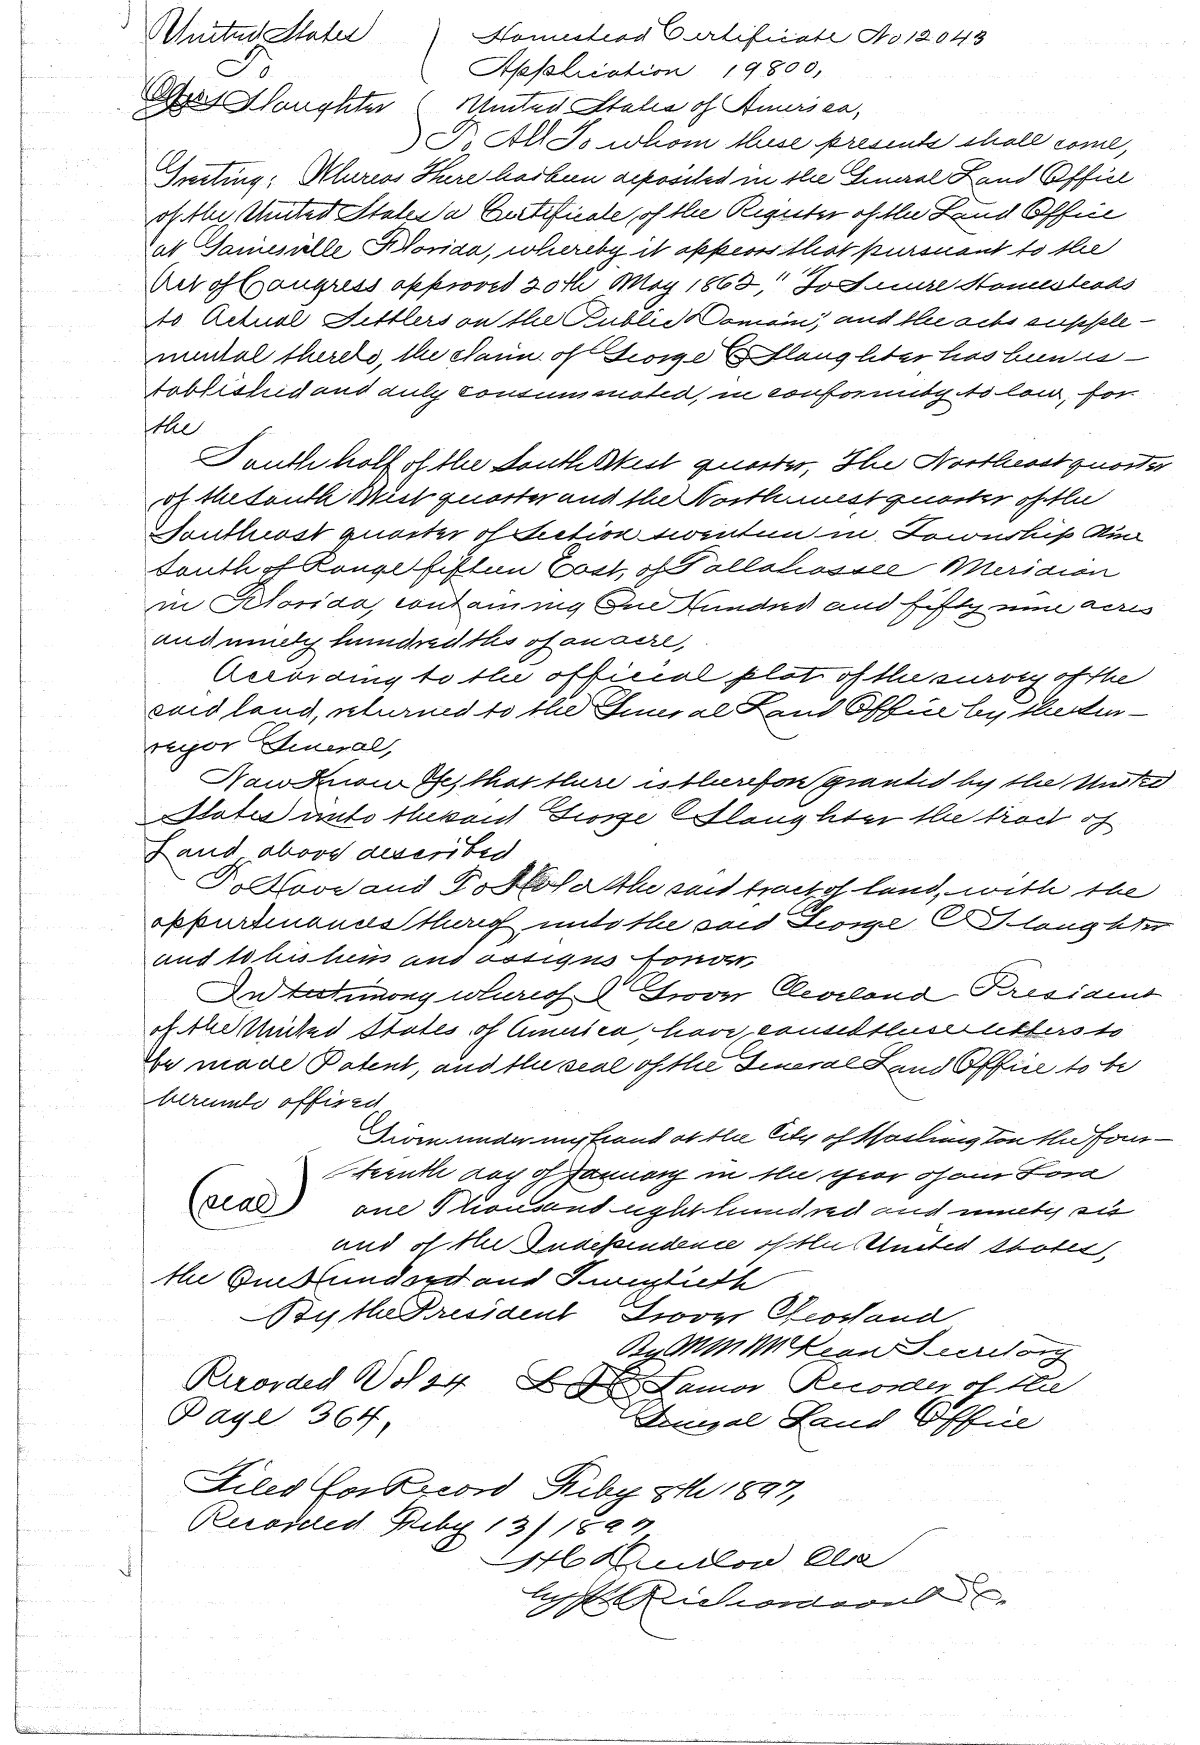 United States
Homestead Certificate No 12043
To
Application 19800,
Slaughter
United States of America,
To All To whom these presents shall come,
Greeting: Whereas There has been deposited in the General Land Office
of the United States a Certificate of the Register of the Land Office
at Gainesville Florida, whereby it appears that pursuant to the
Act of Congress approved 20th May 1862, "To Secure Homesteads
to Actual Settlers on the Public Domain", and the acts supple-
mental thereto, the claim of George C Slaughter has been es-
tablished and duly consummated, in conformity to law, for
the
South half of the South West quarter, The Northeast quarter
of the South West quarter and the Northwest quarter of the
Southeast quarter of Section seventeen in Township Nine
South of Range fifteen East, of Tallahassee Meridian
in Florida, containing One Hundred and fifty nine acres
and ninety hundredths of an acre,
According to the official plat of the survey of the
said land, returned to the General Land Office by the Sur-
veyor General,
Now Know Ye, that there is therefore granted by the United
States unto the said George C Slaughter the tract of
Land above described
To Have and To Hold the said tract of land, with the
appurtenances thereof unto the said George C Slaughter
and to his heirs and assigns forever,
In testimony whereof I Grover Cleveland President
of the United States of America, have caused these letters to
be made Patent, and the seal of the General Land Office to be
hereunto affixed
Given under my hand at the City of Washington the four-
teenth day of January in the year of our Lord
(seal)
one Thousand eight hundred and ninety six
and of the Independence of the United States,
the One Hundred and Twentieth
By the President Grover Cleveland
By M McKean Secretary
Recorded Vol 24 L Q C Lamar Recorder of the
Page 364, General Land Office
Filed for Record Feby 8th 1897,
Recorded Feby 13/1897
Clk
by Richardson D C.